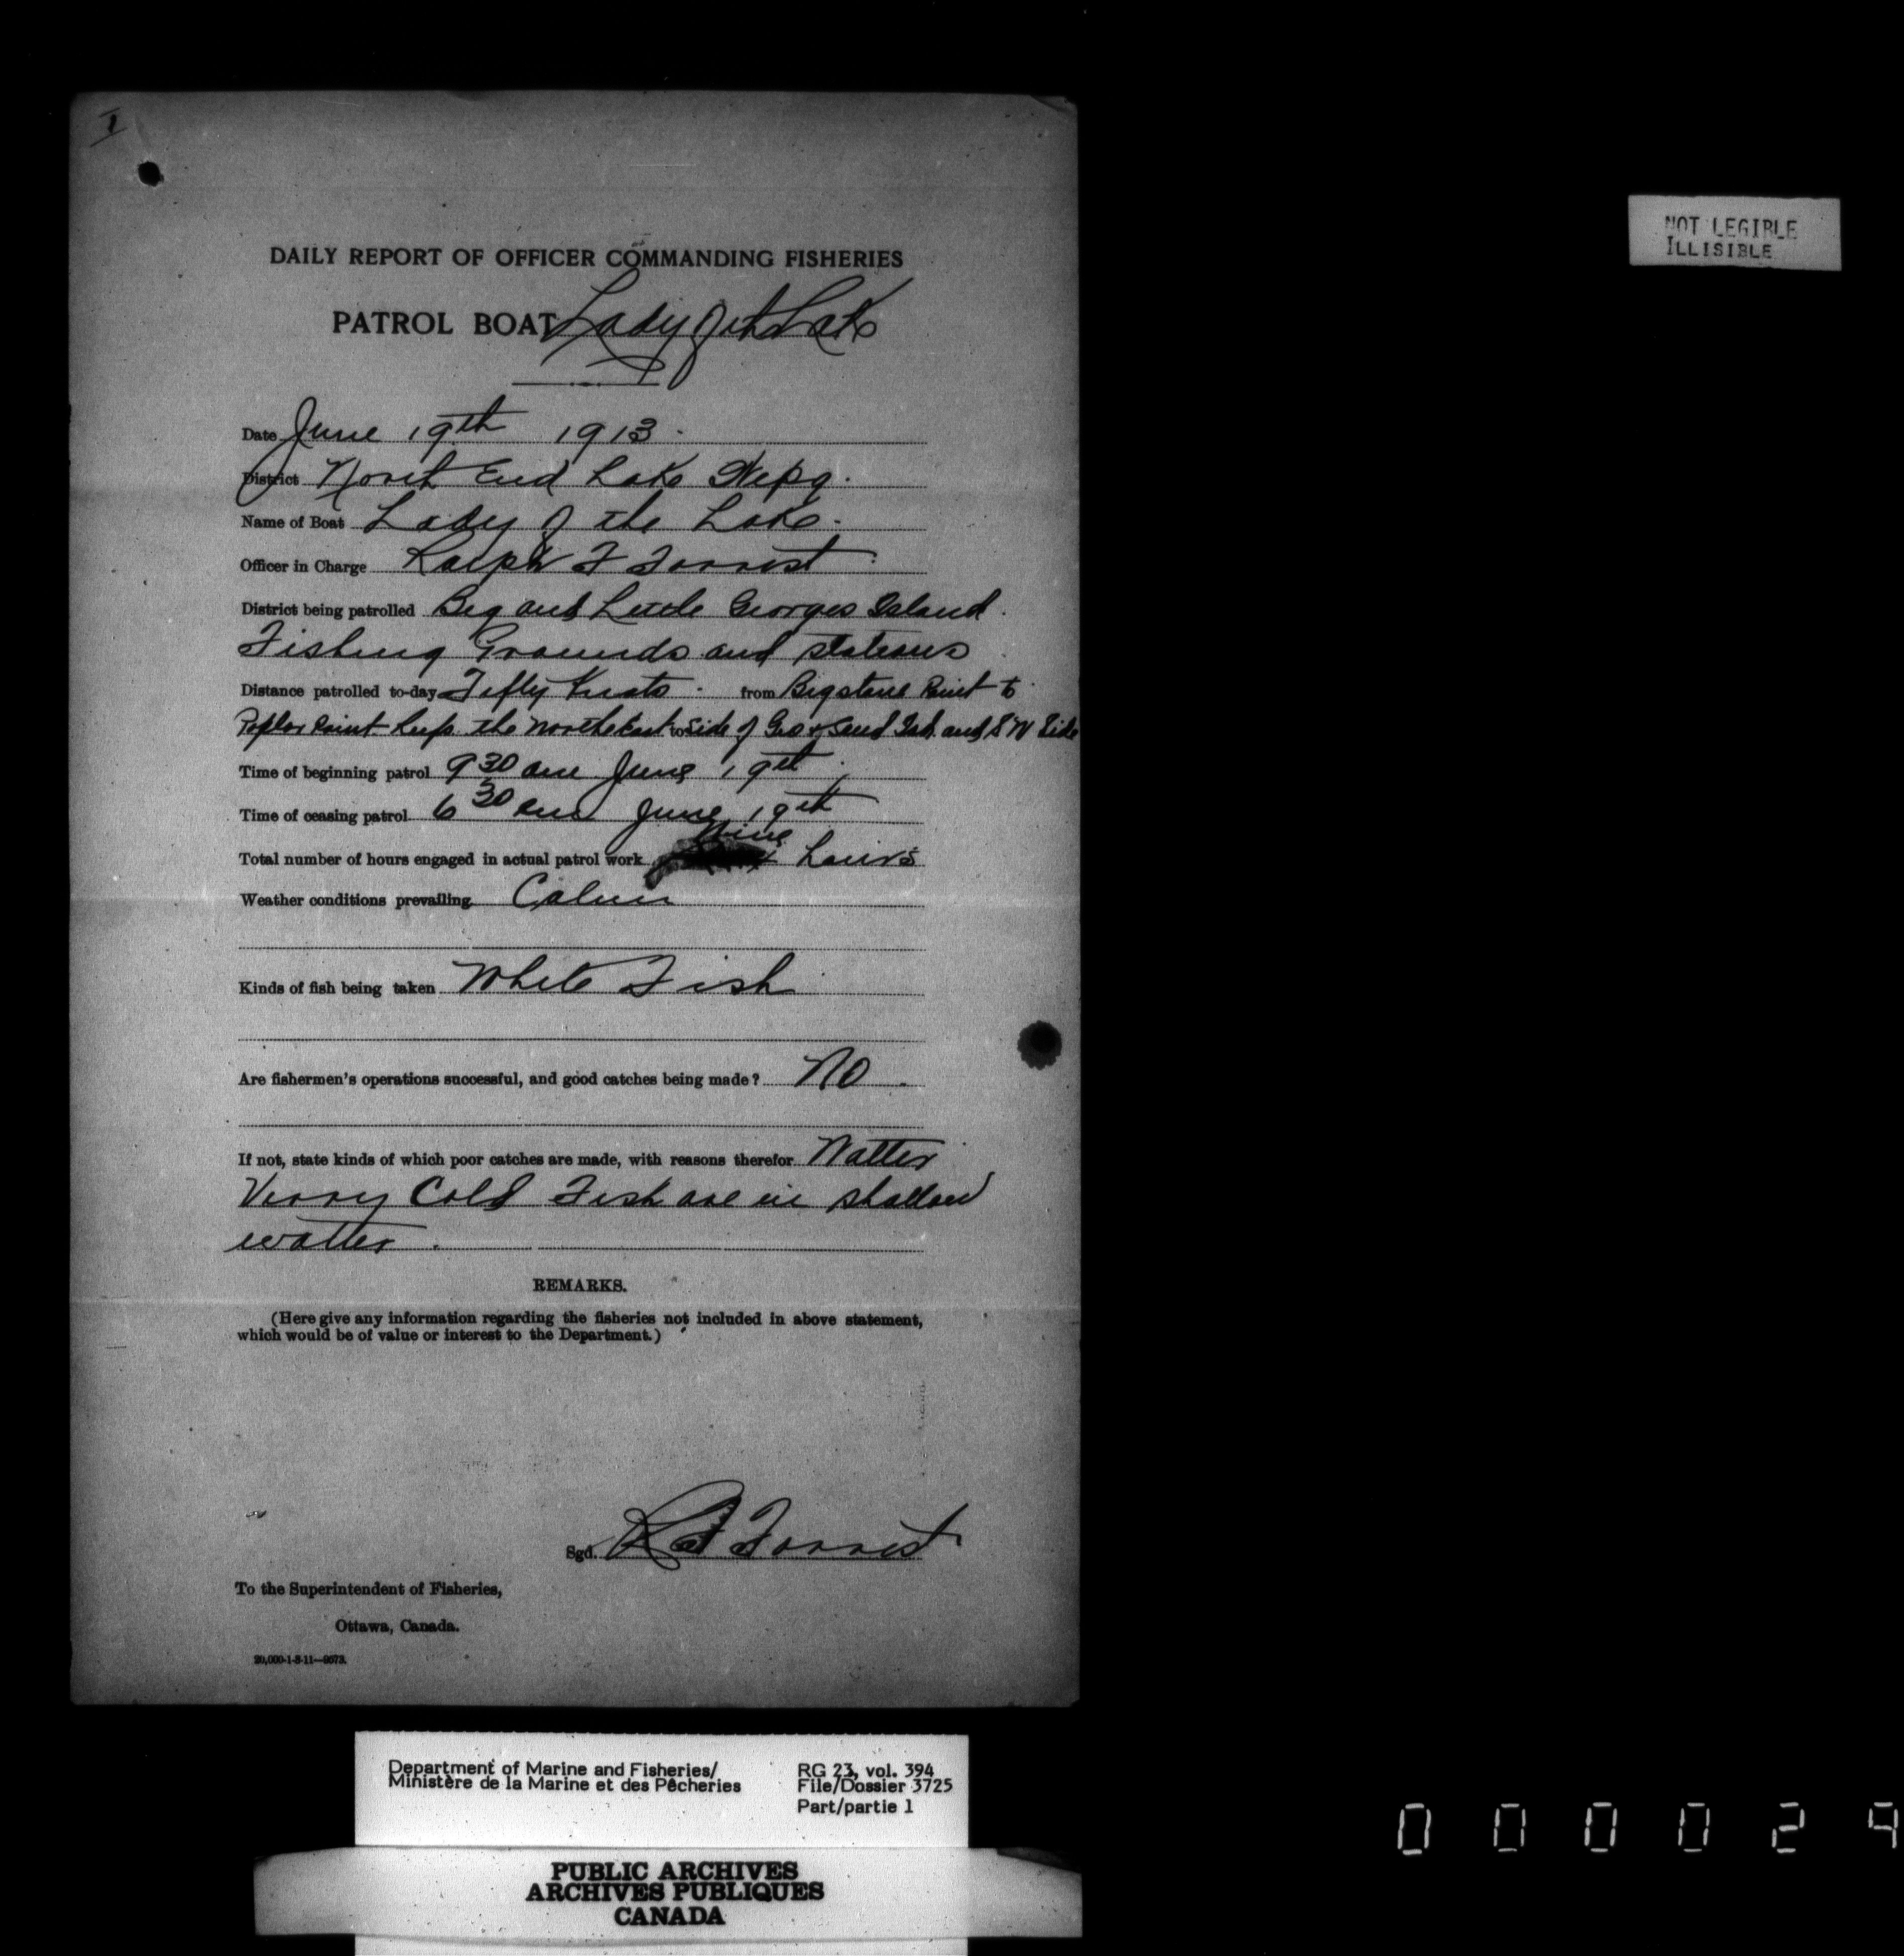 1
NOT LEGIBLE
ILLISIBLE
DAILY REPORT OF OFFICER COMMANDING FISHERIES
PATROL BOAT Lady of the Lake
Date June 19th 1913.
District North End Lake Wepg.
Name of Boat Lady of the Lake.
Officer in Charge Ralph F Forrest
District being patrolled Big and Little Georges Island.
Fishing Grounds and stations
Distance patrolled to-day Fifty Knots. from Bigstone Point to
Poplar Point the North East to side of Geo Island and S W Side
Time of beginning patrol 9 30 am June 19th
Time of ceasing patrol 6 30 June 19th
Total number of hours engaged in actual patrol work Nine hours
Weather conditions prevailing Calm
Kinds of fish being taken White Fish
Are fishermen's operations successful, and good catches being made? No.
If not, state kinds of which poor catches are made, with reasons therefor Watter
Verry Cold Fish are in shallow
watter.
REMARKS.
(Here give any information regarding the fisheries not included in above statement,
which would be of value or interest to the Department.)
Sgd. R F Forrest
To the Superintendent of Fisheries,
Ottawa, Canada.
20,000-1-8-11—9573.
Department of Marine and Fisheries/ RG 23, vol. 394
Ministère de la Marine et des Pêcheries File/Dossier 3725
Part/partie 1
PUBLIC ARCHIVES
ARCHIVES PUBLIQUES
CANADA
0 0 0 0 2 9